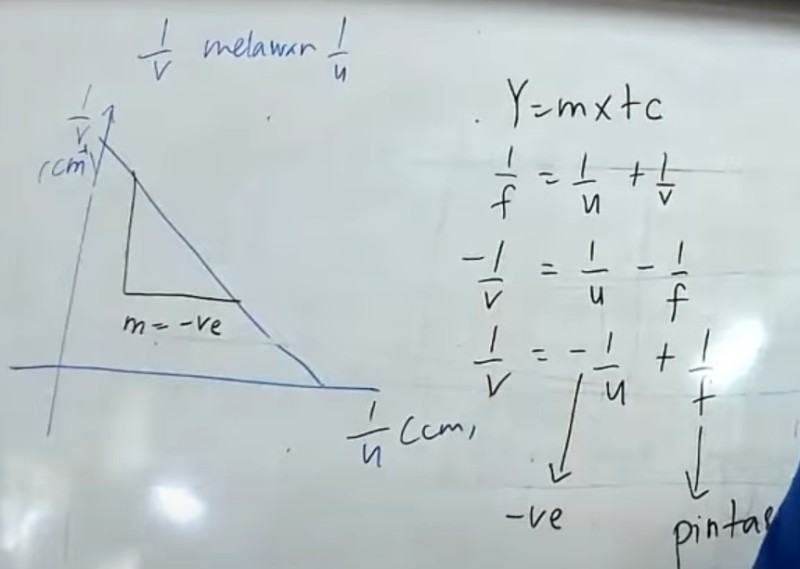 1/v melawan 1/u
1/v
(cm⁻¹)
m = -ve
1/u (cm,
Y=mx+c
1/f = 1/u + 1/v
-1/v = 1/u - 1/f
1/v = -1/u + 1/f
-ve